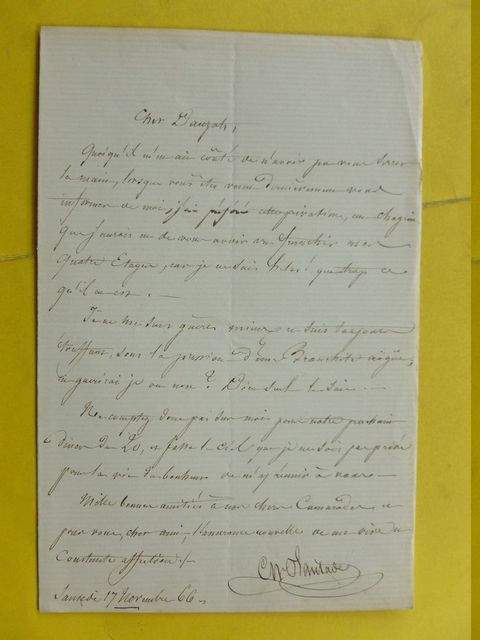 Cher Dauzats,
Quoiqu'il m'en ait coûté de n'avoir pu vous serrer
la main, lorsque vous êtes venu dernièrement vous
informer de moi, j'ai préféré cette privation, au chagrin
que j'aurais eu de vous avoir vu franchir mes
quatre Etages, car je ne sais hélas! que trop ce
qu'il en est. —
Je ne me sens guères mieux et suis toujours
étouffant sous la pression d'une Bronchite aigüe,
en guérirai je ou non? Dieu seul le sait. —
Ne comptez donc pas sur moi pour notre prochain
diner du 20, et fasse le ciel que je ne sois pas privé
pour la vie du bonheur de m'y réunir à vous. —
Mille bonnes amitiés à nos chers Camarades, et
pour vous, cher ami, l'assurance nouvelle de ma vive et
Constante affection. /.
Samedi 17 Novembre 66.